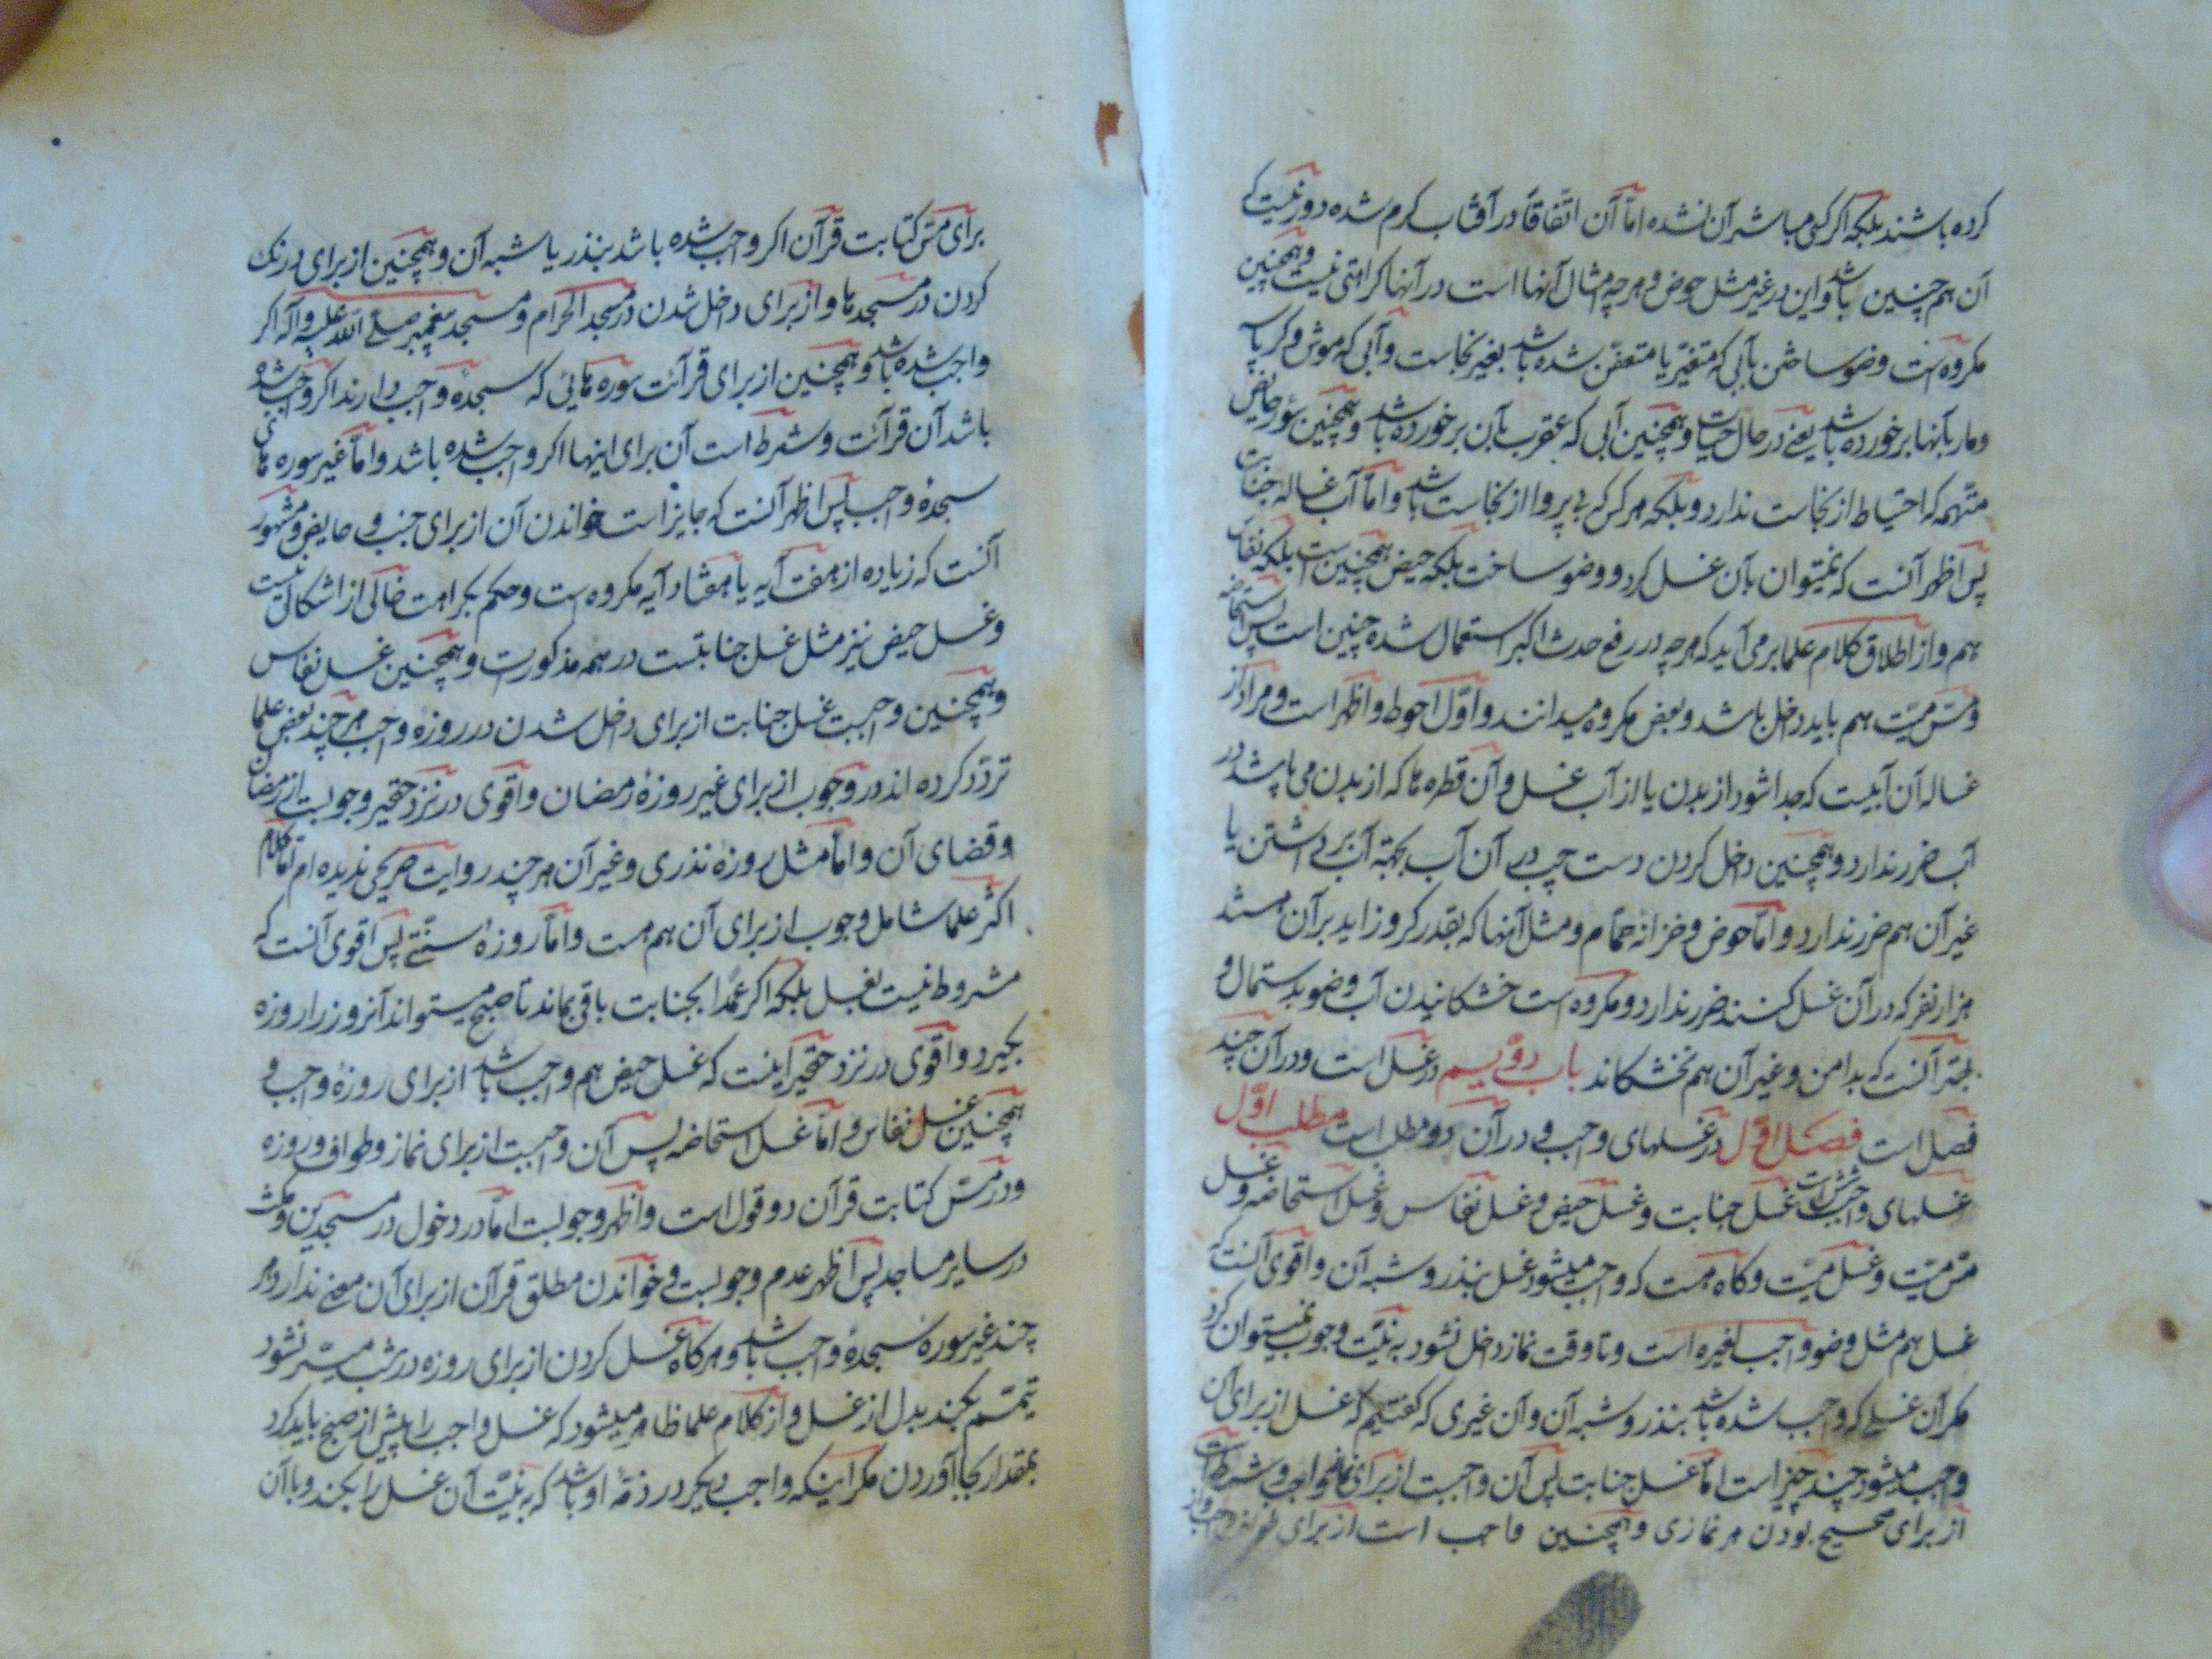 کرده باشند بلکه اکر کسی مباشر آن نشده امّا آن اتّفاقاً در آفتاب کرم شده دور نیست که
آن هم چنین باشد و این در غیر مثل حوض و هر چه امثال آنها است در آنها کراهتی نیست و همچنین
مکروه است وضو ساختن بآبی که متغیّر یا متعفّن شده باشد بغیر نجاست و آبی که موش و کربه
و مار بآنها برخورده باشد یعنے در حال حیات و همچنین آبی که عقرب بآن برخورده باشد و همچنین سؤر حایض
متّهمه که احتیاط از نجاست ندارد و بلکه هر کس که بی پروا از نجاست باشد و امّا آب غساله جنابت
پس اظهر آنست که نمیتوان بآن غسل کرد و وضو ساخت بلکه حیض همچنین است بلکه نفاس
هم و از اطلاق کلام علما بر می آید که هر چه در رفع حدث اکبر استعمال شده چنین است پس استحاضه
و مسّ میّت هم باید داخل باشد و بعض مکروه میدانند و اوّل احوط و اظهر است و مراد از
غساله آن آبیست که جدا شود از بدن یا از آب غسل و آن قطره ها که از بدن می پاشد در
آب ضرر ندارد و همچنین داخل کردن دست چپ در آن آب بجهة آب برداشتن یا
غیر آن هم ضرر ندارد و امّا حوض و خزانه حمّام و مثل آنها که بقدر کر و زاید بر آن هستند
هزار نفر که در آن غسل کنند ضرر ندارد و مکروه است خشکانیدن آب وضو بدستمال و
بهتر آنست که بدامن و غیر آن هم نخشکاند باب دویم در غسل است و در آن چند
فصل است فصل اوّل در غسلهای واجب و در آن دو مطلب است مطلب اوّل
غسلهای واجب شش است غسل جنابت و غسل حیض و غسل نفاس و غسل استحاضه و غسل
مسّ میّت و غسل میّت و کاه هست که واجب میشود غسل بنذر و شبه آن و اقوی آنست که
غسل هم مثل وضو واجب لغیره است و تا وقت نماز داخل نشود به نیّت وجوب نمیتوان کرد
مکر آن غسلے که واجب شده باشد بنذر و شبه آن و آن غیری که کفتیم که غسل از برای آن
واجب میشود چند چیز است امّا غسل جنابت پس آن واجبست از برای نماز واجب و شرط است
از برای صحیح بودن هر نمازی و همچنین واجب است از برای طواف واجب و از
برای مسّ کتابت قرآن اکر واجب شده باشد بنذر یا شبه آن و همچنین از برای درنک
کردن در مسجد ها و از برای داخل شدن در مسجد الحرام و مسجد پیغمبر صلّے الله علیه و آله اکر
واجب شده باشد و همچنین از برای قرآئت سوره هائی که سجدهٔ واجب دارند اکر واجب شده
باشد آن قرآئت و شرط است آن برای اینها اکر واجب شده باشد و امّا غیر سوره های
سجدهٔ واجب پس اظهر آنست که جایز است خواندن آن از برای جنب و حایض و مشهور
آنست که زیاده از هفت آیه یا هفتاد آیه مکروه است و حکم بکراهت خالی از اشکالی نیست
و غسل حیض نیز مثل غسل جنابتست در همه مذکورات و همچنین غسل نفاس
و همچنین واجبست غسل جنابت از برای داخل شدن در روزه واجب هر چند بعض علما
تردّد کرده اند در وجوب از برای غیر روزهٔ رمضان و اقوی در نزد حقیر وجوبست از رمضان
و قضای آن و امّا مثل روزه نذری و غیر آن هر چند روایت صریحی ندیده ام امّا کلام
اکثر علما شامل وجوب از برای آن هم هست و امّا روزهٔ سنّتے پس اقوی آنست که
مشروط نیست بغسل بلکه اکر عمداً بجنابت باقی بماند تا صبح میتواند آنروز را روزه
بکیرد و اقوی در نزد حقیر اینست که غسل حیض هم واجب باشد از برای روزهٔ واجب و
همچنین غسل نفاس و امّا غسل استحاضه پس آن واجبست از برای نماز و طواف و روزه
و در مسّ کتابت قرآن دو قول است و اظهر وجوبست امّا در دخول در مسجدین و مکث
در سایر مساجد پس اظهر عدم وجوبست و خواندن مطلق قرآن از برای آن منعے ندارد هر
چند غیر سوره سجدهٔ واجب باشد و هر کاه غسل کردن از برای روزه در شب میسّر نشود
تیمّم بکند بدل از غسل و از کلام علما ظاهر میشود که غسل واجب را پیش از صبح باید کرد
بمقدار بجا آوردن مکر اینکه واجب دیکر در ذمّهٔ او باشد که به نیّت آن غسل را بکند و با آن